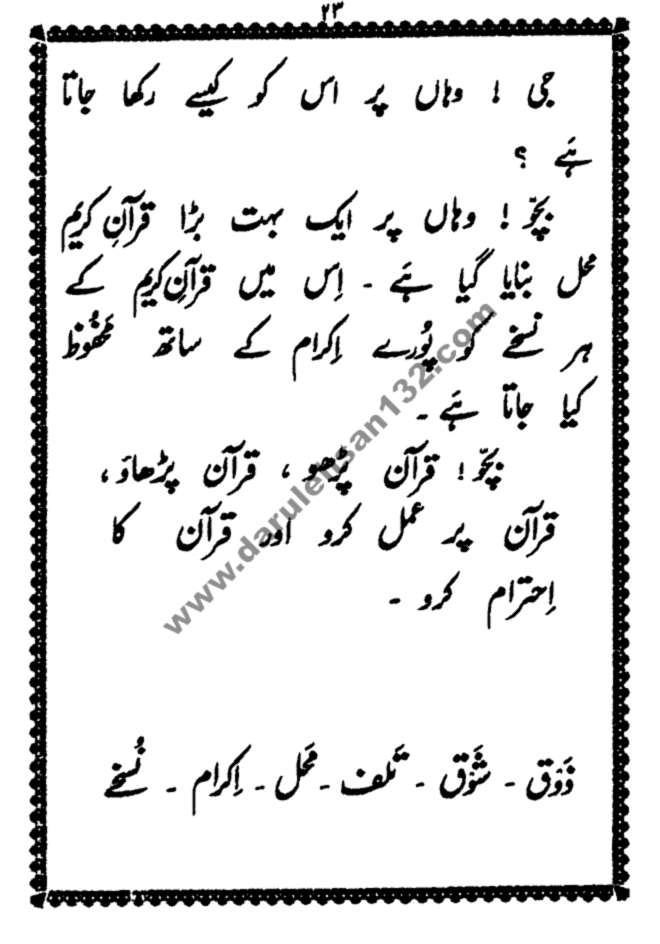 ۲۳
جی ! وہاں پر اس کو کیسے رکھا جاتا
ہَے ؟
بچّو ! وہاں پر ایک بہت بڑا قرآنِ کریم
محل بنایا گیا ہَے ۔ اِس میں قرآنِ کریم کے
ہر نسخے کو پُورے اِکرام کے ساتھ مَحْفُوظ
کیا جاتا ہَے ۔
بچّو ! قرآن پڑھو ، قرآن پڑھاؤ ،
قرآن پر عمل کرو اور قرآن کا
اِحترام کرو ۔
ذَوْق ۔ شَوْق ۔ تَلف ۔ مَحَل ۔ اِکرام ۔ نُسخے
www.darulehsan132.com